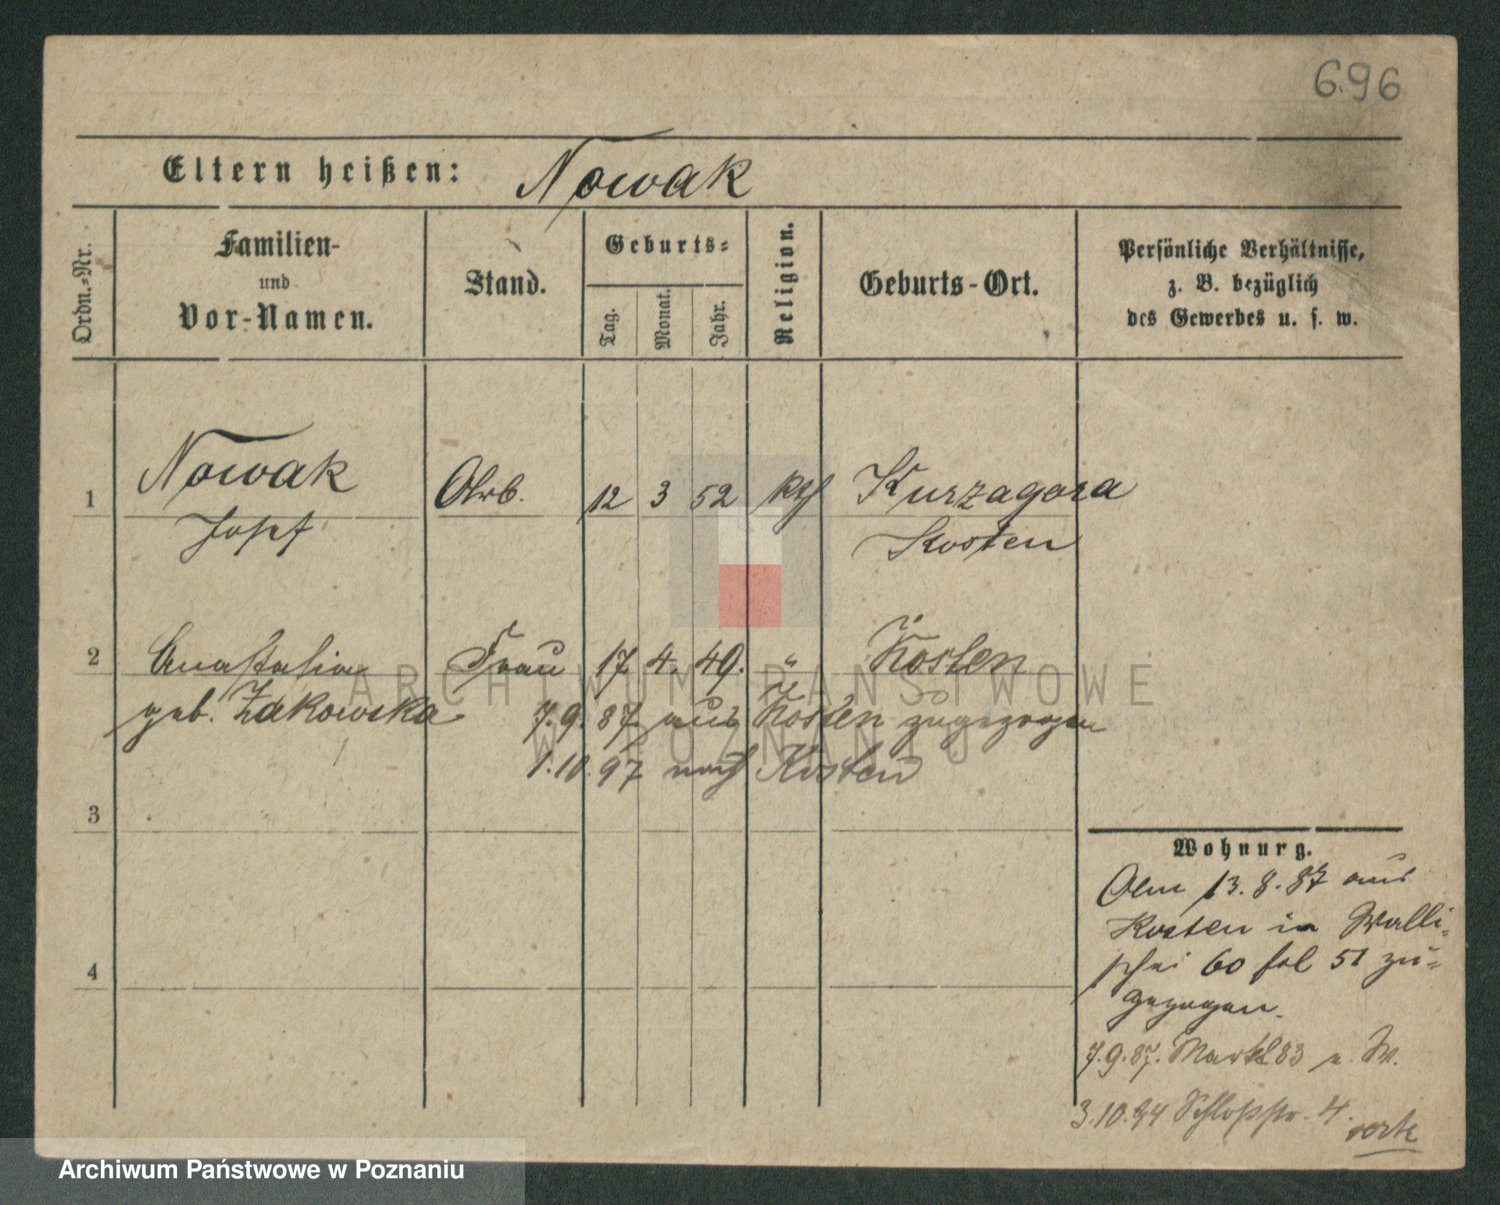 696
Eltern heißen: Nowak
Ordn.-Nr.
Familien-
und
Vor-Namen.
Stand.
Geburts-
Tag.
Monat.
Jahr.
Religion.
Geburts-Ort.
Persönliche Verhältnisse,
z. B. bezüglich
des Gewerbes u. s. w.
1 Nowak Arb. 12 3 52 kth Kurzagora
Josef Kosten
2 Anastasia Frau 17 4. 49. " Kosten
geb. Zakowska 7.9.87 aus Kosten zugezogen
1.10.97 nach Kosten
3
4
Wohnung.
Am 13.8.87 aus
Kosten in Walli-
schei 60 bei 51 zu-
gezogen.
7.9.87. Markt 83 n. W.
3.10.94 Schloßstr. 4.
verte
ARCHIWUM PAŃSTWOWE
W POZNANIU
Archiwum Państwowe w Poznaniu